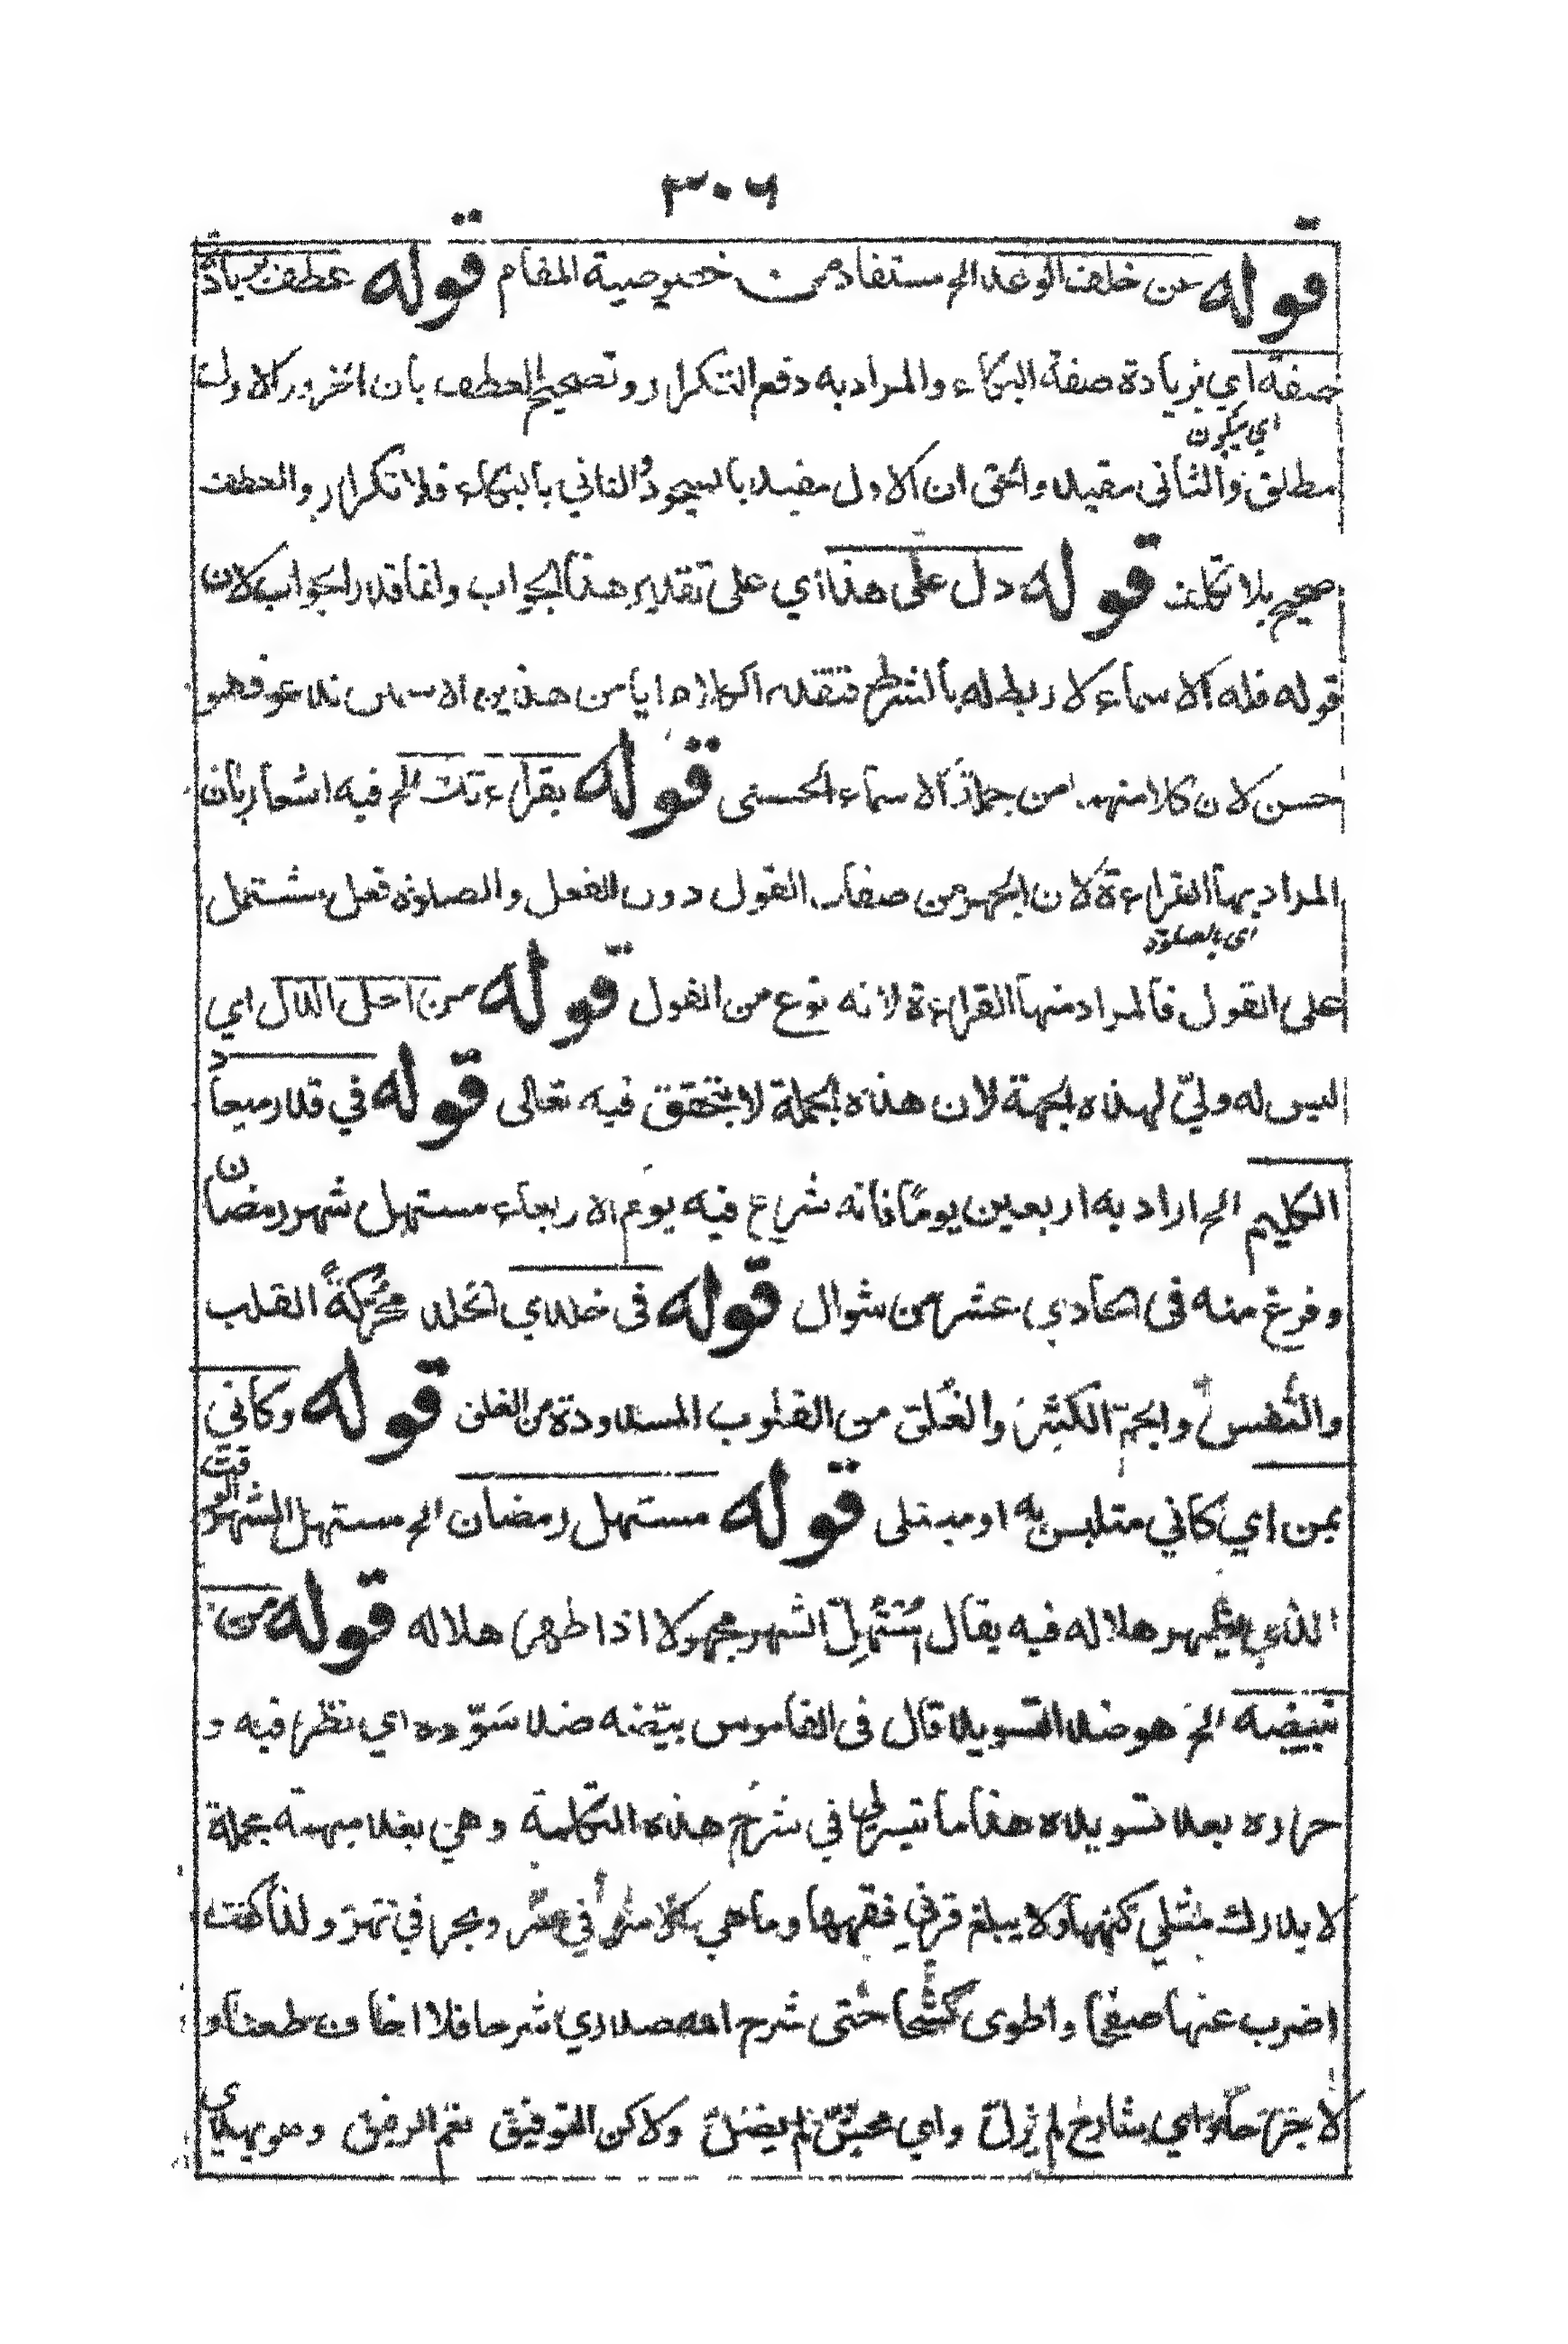 ٣٠٦
قوله عن خلف الوعد الخ مستفاد من خصوصية المقام قوله عطف بزيادة
صفة اي بزيادة صفة البكاء والمراد به دفع التكرار وتصحيح العطف بان الخرور الاول
اي يكون
مطلق والثاني مقيد والحق ان الاول مقيد بالسجود والثاني بالبكاء فلا تكرار والعطف
صحيح بلا تكلف قوله دل على هذا اي على تقدير هذا الجواب وانما قدر الجواب لان
قوله فله الاسماء لا ربط له بالشرط فتقدير الكلام ايا من هذين الاسمين تدعو فهو
حسن لان كلا منهما من جملة الاسماء الحسنى قوله بقراءتك الخ فيه اشعار بان
المراد بها القراءة لان الجهر من صفات القول دون الفعل والصلوة فعل مشتمل
اي بالصلوة
على القول فالمراد منها القراءة لانه نوع من القول قوله من اجل الذل اي
ليس له ولي لهذه الجهة لان هذه الجملة لا يتحقق فيه تعالى قوله في قدر ميعاد
الكليم الخ اراد به اربعين يومًا فانه شرع فيه يوم الاربعاء مستهل شهر رمضان
وفرغ منه في الحادي عشر من شوال قوله في خلدي الخلد محركةً القلب
والنفس والجم الكثير والغلق من القلوب المسدودة من الغلق قوله وكاني
بمن اي كاني متلبس به او مبتلى قوله مستهل رمضان الخ مستهل الشهر الوقت
الذي يظهر هلاله فيه يقال استُهِلّ الشهر مجهولا اذا ظهر هلاله قوله من
تبييضه الخ هو ضد التسويد قال في القاموس بيّضه ضد سَوّده اي نظر فيه و
حرره بعد تسويده هذا ما تيسر لي في شرح هذه التكلمة وهي بعد مبهمة مجملة
لا يدرك مثلي كنهها ولا يبلغ قرني فقهها وما هي وبحر في ولذا كنت
اضرب عنها صفحا واطوى كشحا حتى شرح الله صدري شرحا فلا اخاف طعنا و
لا جرحا واي شارح لم يزل واي محش لم يضل ولاكن التوفيق نعم الرفيق وهو يهدي